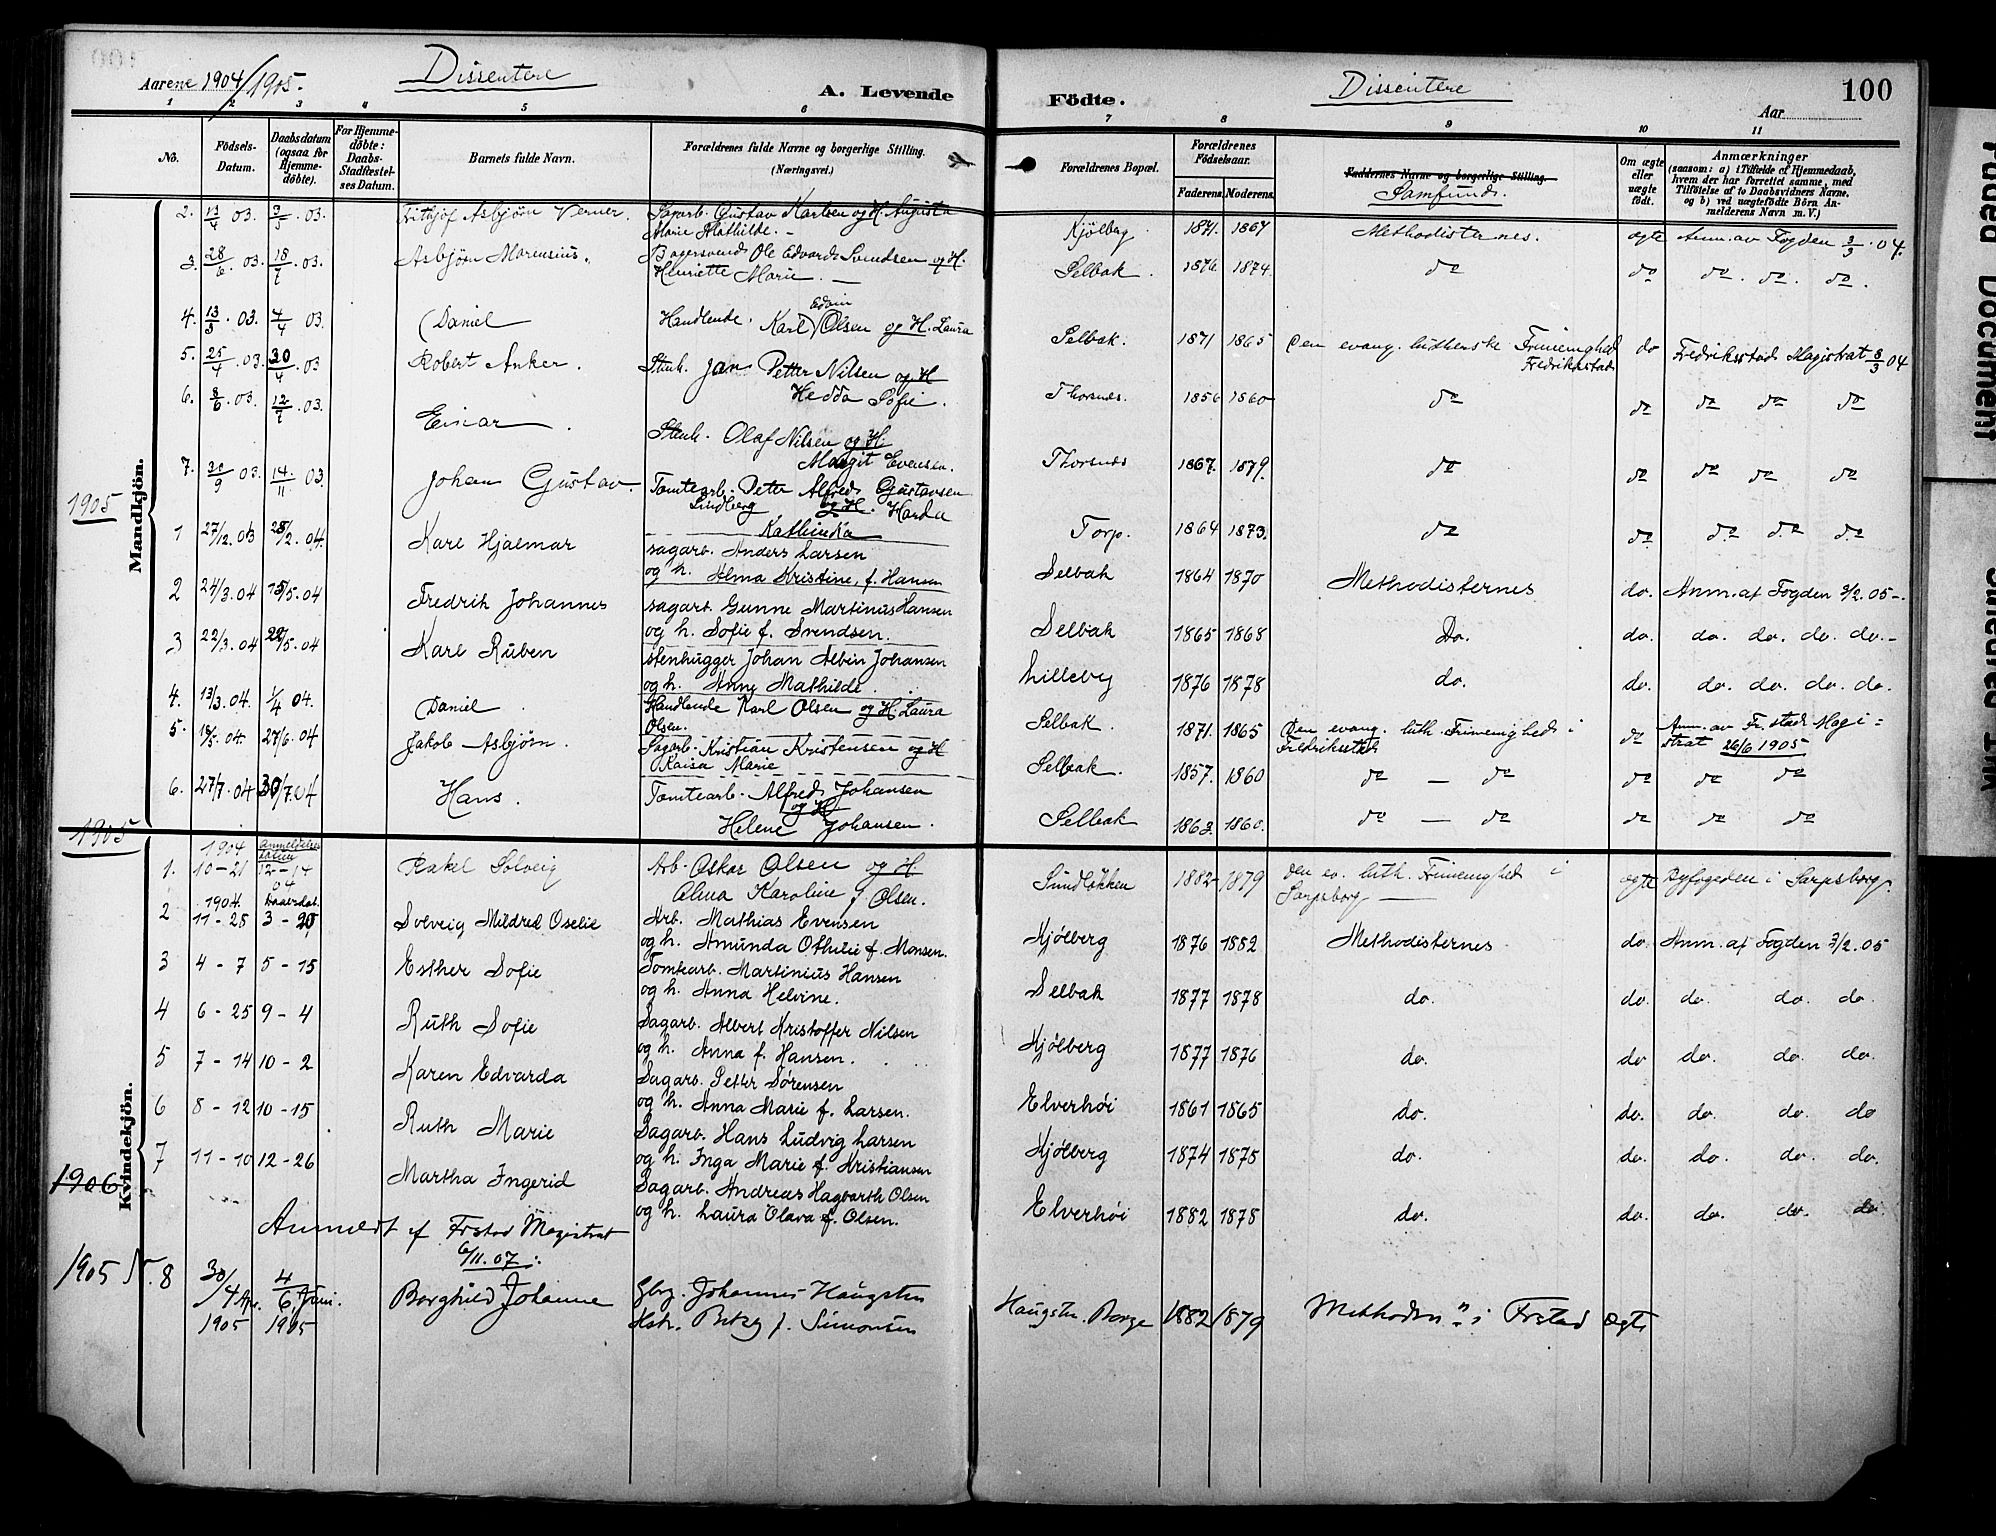 Aarene 1904/1905. Dissentere A. Levende
Födte. Dissentere Aar 100
1 2 3 4 5 6 7 8 9 10 11
No. Födsels-Datum. Daabsdatum (ogsaa for Hjemme-döbte). For Hjemme-döbte: Daabs-Stadfæstel-ses Datum. Barnets fulde Navn. Forældrenes fulde Navne og borgerlige Stilling. (Næringsvei.) Forældrenes Bopæl. Forældrenes Födselsaar. Faderens. Moderens. Faddernes Navne og borgerlige Stilling. Samfund. Om ægte eller uægte födt. Anmærkninger (saasom: a) i Tilfælde af Hjemmedaab, hvem der har forrettet samme, med Tilföielse af to Daabsvidners Navne, og b) ved uægtefödte Börn An-melderens Navn m. V.)
Mandkjön.
2. 13/4 03. 3/5 03. Fithjof Asbjörn Verner. Sagarb. Gustav Karlsen og H. Augusta
Marie Mathilde. — Kjölberg 1871. 1867 Methodisternes. ægte Anm. av Fogden 3/3 04.
3. 28/6 03. 18/7 03. Asbjörn Marensius. Bagersvend Ole Edvard Svendsen og H.
Henriette Marie. — Selbak. 1876 1874. do do do. do. do.
4. 13/3 03. 4/4 03. Daniel Handlende. Karl Edvin Olsen og H. Laura
Selbak. 1871 1865 Den evang. lutherske Frimenighed Fredriksstad do Fredriksstads Magistrat 8/3 04
5. 25/4 03. 30/4 03 Robert Anker. Stenh. Jan Petter Nilsen og H
Hedda Sofie. Thorsnes. 1856 1860 do do do do do
6. 8/6 03. 12/7 03. Einar. Stenh. Olaf Nilsen og H.
Magit Evensen. Thorsnes 1867. 1879. do do do do do
7. 30/9 03. 14/11 03. Johan Gustav. Tomtearb. Petter Alfred Gustavsen
Lindberg og H. Harda
Kathinka Torp. 1864 1873. do do do do do
1905
1 27/12. 03 28/2. 04. Karl Hjalmar sagarb. Anders Larsen
og h. Alma Kristine, f. Hansen Selbak 1864 1870 Methodisternes do. Anm. af Fogden 3/2. 05-.
2 24/3. 04 15/5. 04 Fredrik Johannes sagarb. Gunne Martinus Hansen
og h. Sofie f. Svendsen. Selbak 1865 1868 Do. do. do. do. do. do.-
3 22/3. 04 22/5. 04 Karl Ruben stenhugger Johan Albin Johansen
og h. Anna Mathilde. Lilleby 1876 1878 do. do. do. do. do. do.
4. 13/3. 04 1/4 04. Daniel Handlende Karl Olsen og H. Laura
Olsen. Selbak. 1871. 1865 Den evang. luth. Frimenighed i Fredriksstad do Anm. av Fr.stads Magi=strat 26/6 1905
5. 18/5. 04. 27/6. 04 Jakob Asbjörn. Sagarb. Kristian Kristensen og H
Raisa Marie Selbak. 1857. 1860 do — do do do do
6. 27/7. 04 30/7. 04 Hans. Tomtearb. Alfred Johansen
og H
Helene Johansen. Selbak 1863. 1860. do — do do do do
1905
Kvindekjön.
1904 Anmeldelses datum
1. 10-21 12-14 04 Rakel Solveig Arb. Oskar Olsen og H
Alma Karoline f. Olsen. Sundlökken 1882- 1879 Den ev. luth. Frimenighed i Sarpsborg — ægte Byfogeden i Sarpsborg.
1904. Daabsdat.
2 11-28 3-20 Solveig Mildred Oselie Arb. Mathias Evensen
og h. Amunda Othilie f. Monsen. Kjölberg 1876 1882 Methodisternes do. Anm. af Fogden 3/2. 05
3 4-7 5-15 Esther Sofie Tomtearb. Martinius Hansen
og h. Anna Helvine. Selbak 1877 1878 do. do. do. do. do.
4 6-25 9-4 Ruth Sofie Sagarb. Albert Kristoffer Nilsen
og h. Anna f. Hansen. Kjölberg 1877 1876 do. do. do. do. do.
5 7-14 10-2 Karen Edvarda Sagarb. Petter Sörensen
og h. Anna Marie f. Larsen. Elverhöi 1861 1865 do. do. do. do. do
6 8-12 10-15 Ruth Marie Sagarb. Hans Ludvig Larsen
og h. Inga Marie f. Kristiansen Kjölberg 1874 1875 do. do. do. do. do.
7 11-10 12-26 Martha Ingerid Sagarb. Andreas Hagbarth Olsen
og h. Laura Olava f. Olsen. Elverhöi 1882 1878 do. do. do. do. do.
1906
Anmeldt af Frstad Magistrat
6/11. 07.
1905 N. 8 30/4 Apr. 1905 4/6 Juni. 1905 Borghild Johanne Gbrg. Johannes Haugsten
Hstr. Betzy f. Simonsen Haugsten. Borge 1882 1879 Methodistn i Frstad ægte